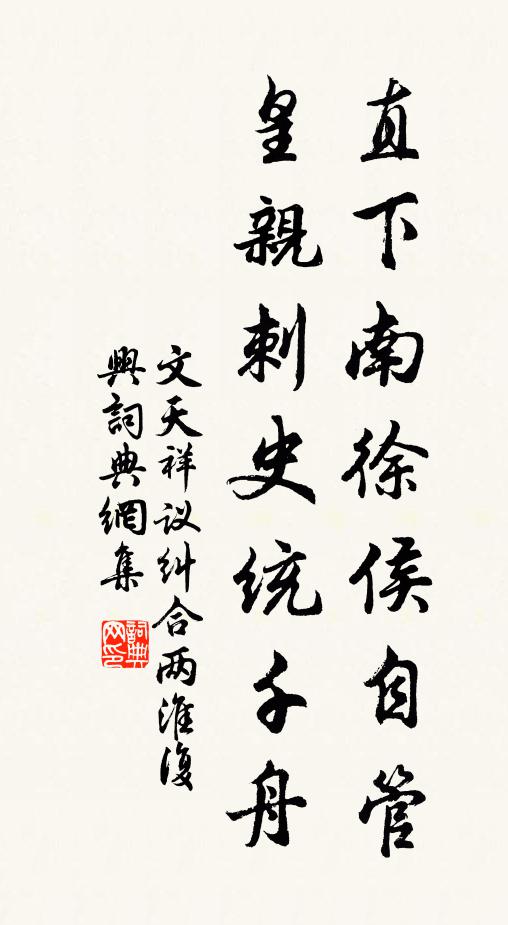 直下南徐侯自管
皇親刺史統千舟
文天祥议纠合两淮復
興詞典網集
詞典网印